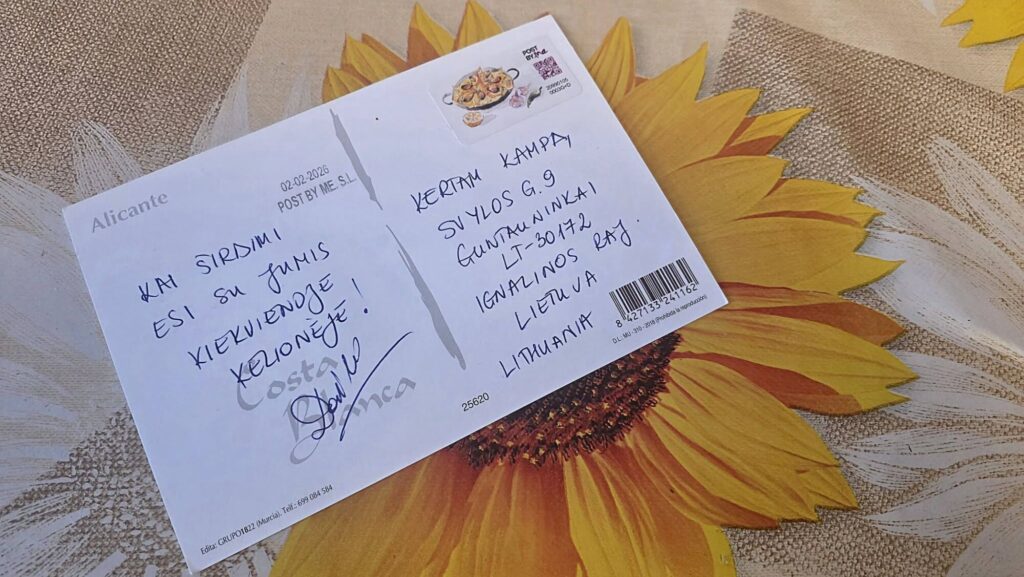 Alicante
02-02-2026
POST BY ME, S.L.
KAI ŠIRDIMI
ESI SU JUMIS
KIEKVIENOJE
KELIONĖJE!
Costa
Blanca
Edita: GRUPO1822 (Murcia). Telf.: 699 084 584
25620
POST
BY Me
KERTAM KAMPĄ,
SVYLOS G. 9
GUNTAUNINKAI
LT-30172
IGNALINOS RAJ.
LIETUVA
LITHUANIA
8 427133 241162
D.L. MU - 310 - 2018 (Prohibida la reproducción)